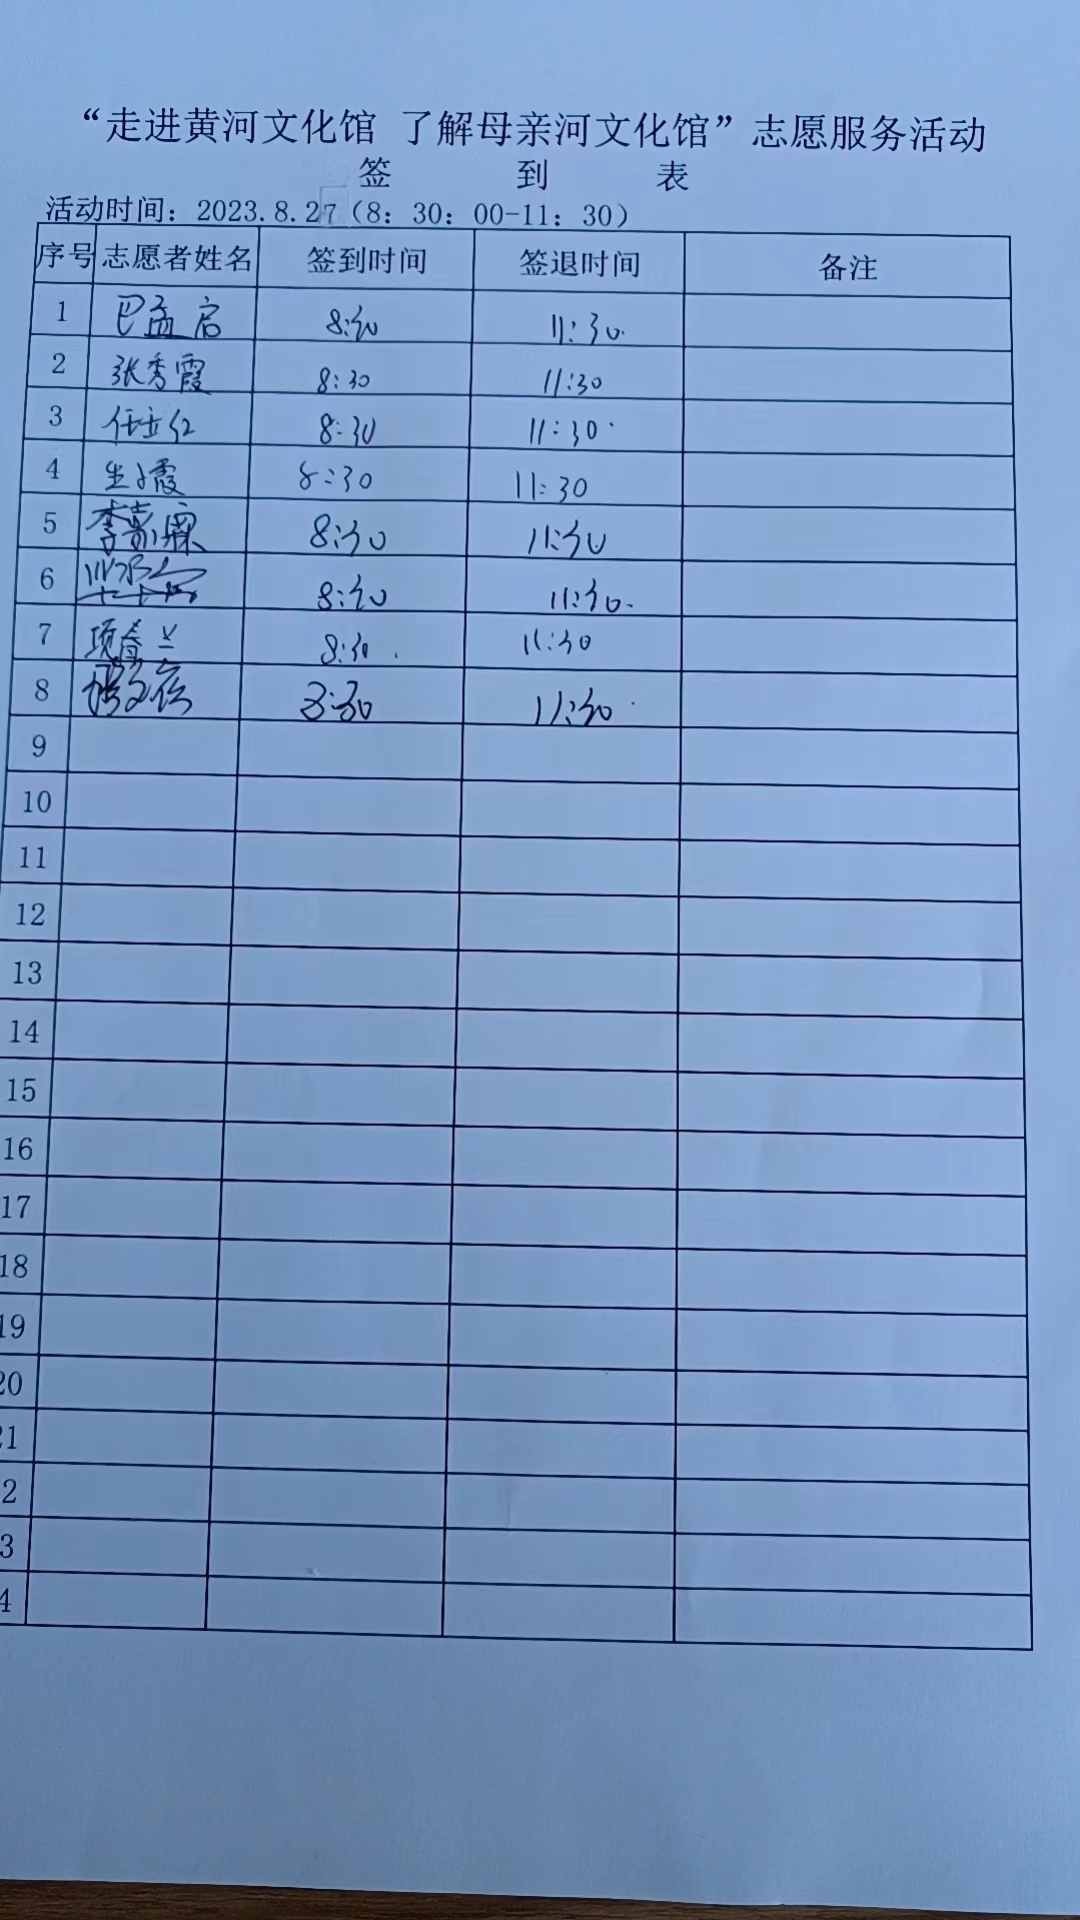 “走进黄河文化馆 了解母亲河文化馆”志愿服务活动
签 到 表
活动时间：2023.8.27（8：30：00-11：30）
序号 志愿者姓名 签到时间 签退时间 备注
1 巴孟启 8:30 11:30.
2 张秀霞 8:30 11:30
3 任立红 8:30 11:30
4 霞 8:30 11:30
5 李嘉霖 8:30 11:30
6 8:30 11:30.
7 项春兰 8:30. 11:30
8 8:30 11:30
9
10
11
12
13
14
15
16
17
18
19
20
21
2
3
4